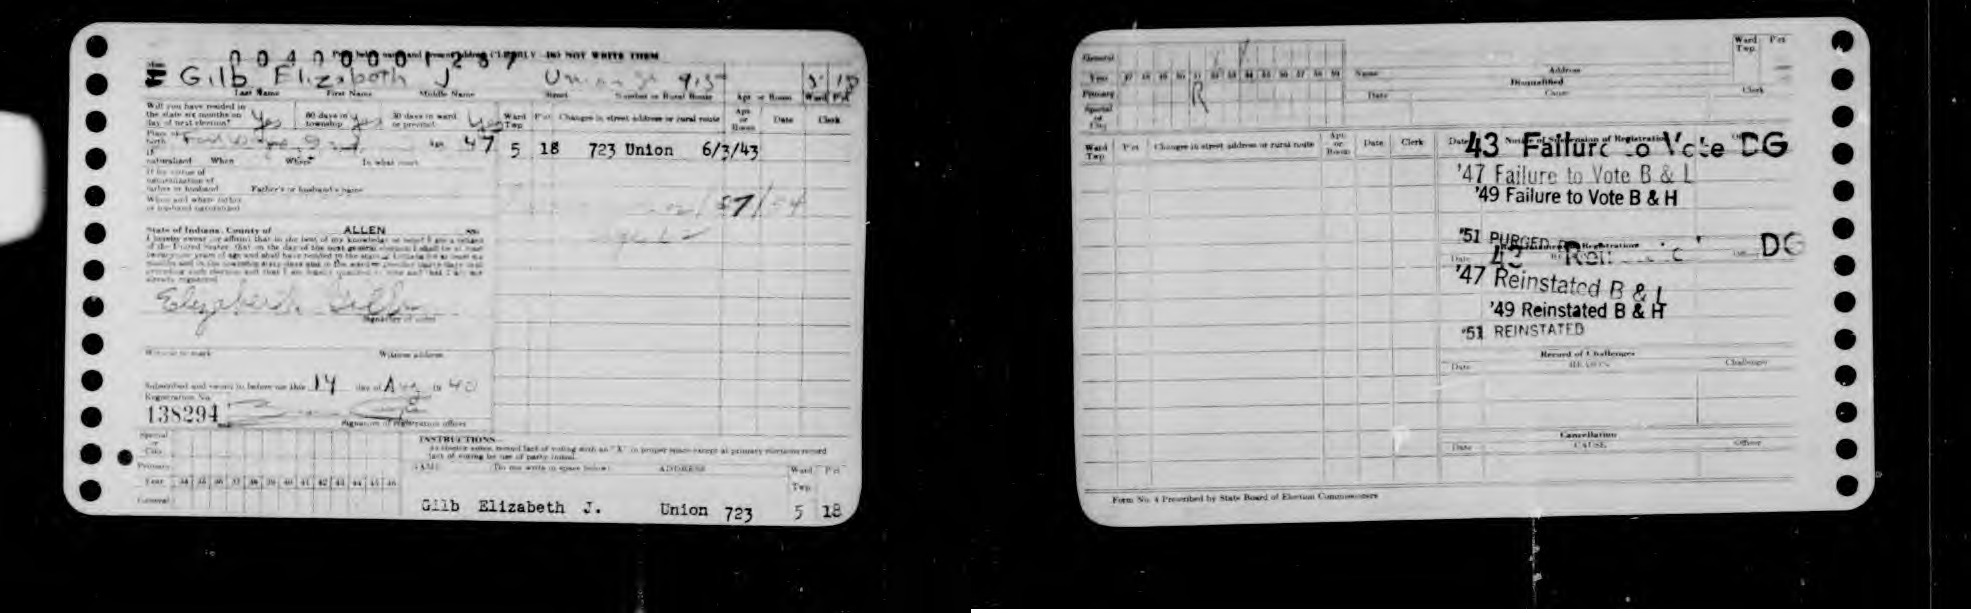 0040001237
Print below name and present address CLEARLY DO NOT WRITE THEM
Gilb Elizabeth J Union St 915 5 18
Last Name First Name Middle Name Street Number or Rural Route Apt. or Room Ward Pct
Will you have resided in
the state six months on
day of next election? Yes 60 days in township yes 30 days in ward or precinct yes
Ward Twp Pct Changes in street address or rural route Apt. or Room Date Clerk
Place of birth Fort Wayne, Ind. Age 47
5 18 723 Union 6/3/43
If naturalized When Where In what court
If by virtue of
naturalization of
father or husband Father's or husband's name
When and where father
or husband naturalized
State of Indiana, County of ALLEN ss:
I hereby swear (or affirm) that to the best of my knowledge or belief I am a citizen
of the United States; that on the day of the next general election I shall be at least
twenty-one years of age and shall have resided in the state of Indiana for at least six
months and in the township sixty days and in the ward or precinct thirty days next
preceding such election and that I am legally qualified to vote and that I am not
already registered.
Elizabeth Gilb
Signature of voter
Witness to mark Witness address
Subscribed and sworn to before me this 14 day of Aug 19 40
Registration No.
138294
Signature of registration officer
Special or City
Primary
Year 34 35 36 37 38 39 40 41 42 43 44 45 46
General
INSTRUCTIONS
NAME Do not write in space below: ADDRESS Ward Twp Pct
Gilb Elizabeth J. Union 723 5 18
General
Year 47 48 49 50 51 52 53 54 55 56 57 58 59
Primary R
Special or City
Name Address Ward Twp. Pct
Disqualified
Date Cause Clerk
Ward Twp Pct Changes in street address or rural route Apt. or Room Date Clerk
Date Notice of Suspension of Registration
43 Failure to Vote DG
'47 Failure to Vote B & L
'49 Failure to Vote B & H
'51 PURGED
Date DG
'47 Reinstated B & L
'49 Reinstated B & H
'51 REINSTATED
Record of Challenges
Date REASON Challenger
Cancellation
Date CAUSE Officer
Form No. 4 Prescribed by State Board of Election Commissioners